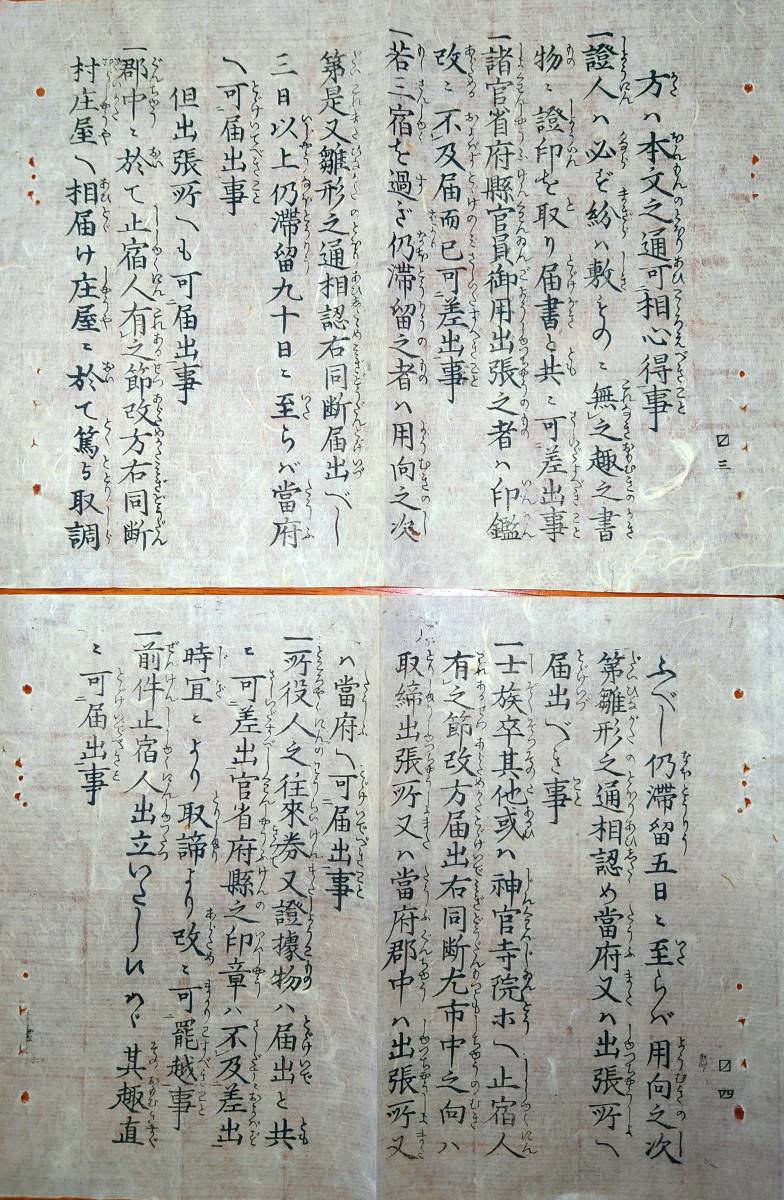 方ハ本文之通可相心得事
一證人ハ必ず紛ハ敷ものニ無之趣之書
物ニ證印を取り届書と共ニ可差出事
一諸官省府縣官員御用出張之者ハ印鑑
改ニ不及届而已可差出事
一若三宿を過ぎ仍滞留之者ハ用向之次
第是又雛形之通相認右同断届出べし
三日以上仍滞留九十日ニ至らバ當府
へ可届出事
但出張所へも可届出事
一郡中ニ於て止宿人有之節改方右同断
村庄屋へ相届け庄屋ニ於て篤与取調
〼三
ふべし仍滞留五日ニ至らバ用向之次
第雛形之通相認め當府又ハ出張所へ
届出べき事
一士族卒其他或ハ神官寺院ホへ止宿人
有之節改方届出右同断尤市中之向ハ
取締出張所又ハ當府郡中ハ出張所又
ハ當府へ可届出事
一所役人之往來券又證據物ハ届出と共
ニ可差出官省府縣之印章ハ不及差出
時宜ニより取諦より改ニ可罷越事
一前件止宿人出立いたし候ハゞ其趣直
ニ可届出事
〼四